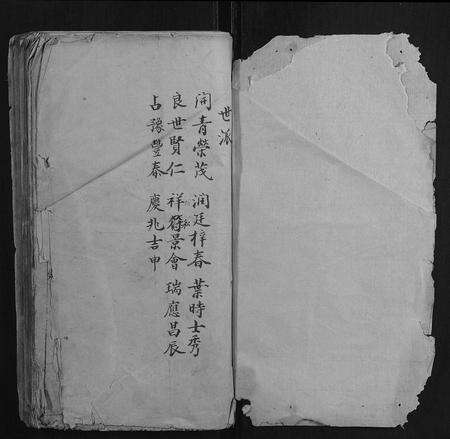 世派
開青榮茂 润廷梓春 葉時士秀
良世賢仁 祥符景會 瑞應昌辰
占豫豐泰 慶兆吉申